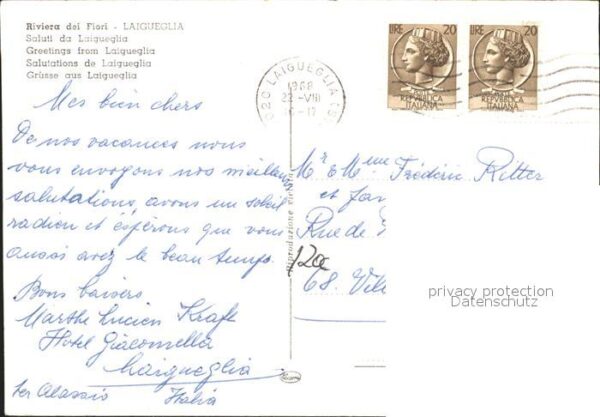 Riviera dei Fiori - LAIGUEGLIA
Saluti da Laigueglia
Greetings from Laigueglia
Salutations de Laigueglia
Grüsse aus Laigueglia
LIRE 20
REPVBBLICA
ITALIANA
LIRE 20
REPVBBLICA
ITALIANA
LAIGUEGLIA
1968
22-VIII
Mes bien chers
De nos vacances nous
vous envoyons nos meilleures
salutations, avons un soleil
radieu et espérons que vous
aussi avez le beau temps.
Bons baisers
Marthe Lucien Kraft
Hotel Giacomella
Laigueglia
per Alassio Italia
Riproduzione vietata
Mr et Mme Frédéric Ritter
et
Rue de
68.
privacy protection
Datenschutz